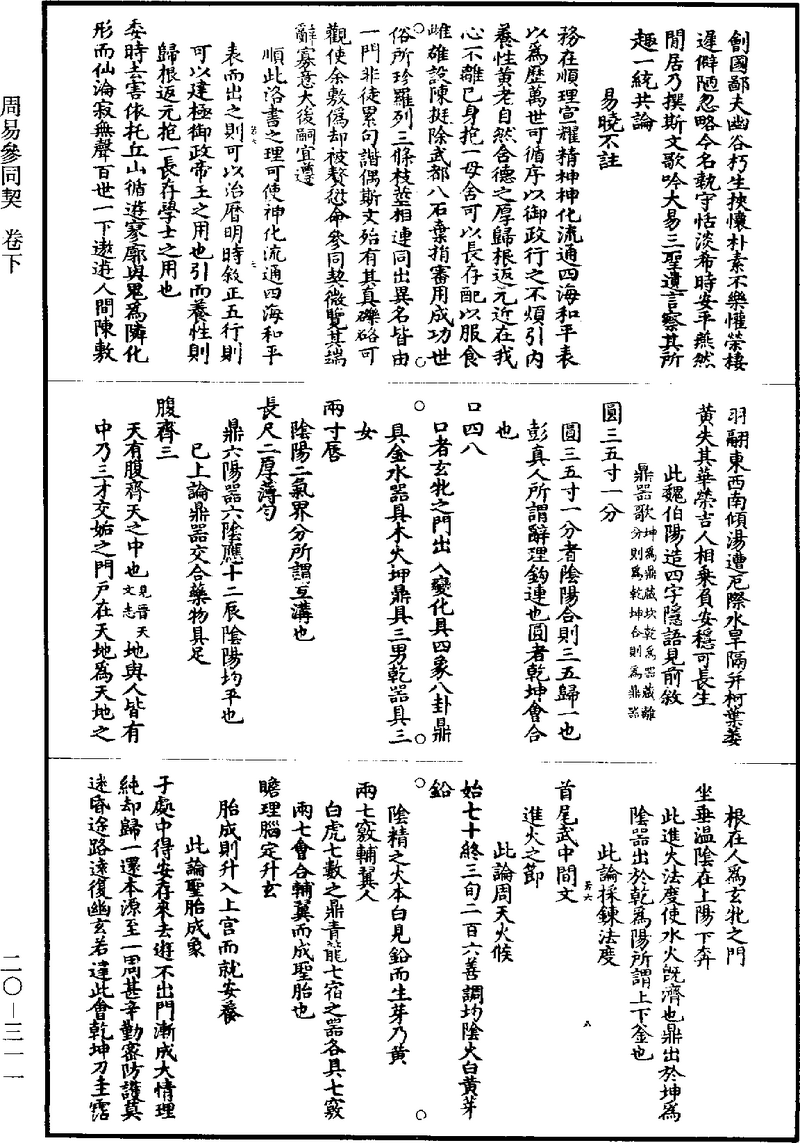 周易參同契 卷下
二〇—三一一
創國鄙夫幽谷朽生挾懷朴素不樂懽榮棲
遲僻陋忽略令名執守恬淡希時安平燕然
閒居乃撰斯文歌吟大易三聖遺言察其所
趣一統共論
易曉不註
務在順理宣耀精神神化流通四海和平表
以為歷萬世可循序以御政行之不煩引內
養性黃老自然含德之厚歸根返元近在我
心不離己身抱一毋舍可以長存配以服食
雌雄設陳挺除武都八石棄捐審用成功世
俗所珍羅列三條枝莖相連同出異名皆由
一門非徒累句諧偶斯文殆有其真礫硌可
觀使余敷偽却被贅愆命參同契微覽其端
辭寡意大後嗣宜遵
順此洛書之理可使神化流通四海和平
表而出之則可以治曆明時敘正五行則
可以建極御政帝王之用也引而養性則
歸根返元抱一長存學士之用也
委時去害依托丘山循遊寥廓與鬼為隣化
形而仙淪寂無聲百世一下遨遊人間陳敷
羽翮東西南傾湯遭厄際水旱隔并柯葉萎
黃失其華榮吉人相乘負安穩可長生
此魏伯陽造四字隱語見前敘
鼎器歌坤為鼎藏坎乾為器藏離
分則為乾坤合則為鼎器
圓三五寸一分
圓三五寸一分者陰陽合則三五歸一也
彭真人所謂辭理鈎連也圓者乾坤會合
也
口四八
口者玄牝之門出入變化具四象八卦鼎
具金水器具木火坤鼎具三男乾器具三
女
兩寸唇
陰陽二氣界分所謂互溝也
長尺二厚薄勻
鼎六陽器六陰應十二辰陰陽均平也
已上論鼎器交合藥物具足
腹齊三
天有腹齊天之中也見晉天文志地與人皆有
中乃三才交姤之門戶在天地為天地之
根在人為玄牝之門
坐垂溫陰在上陽下奔
此進火法度使水火既濟也鼎出於坤為
陰器出於乾為陽所謂上下釜也
此論採鍊法度
首尾武中間文
進火之節
此論周天火候
始七十終三旬二百六善調均陰火白黃芽
鉛
陰精之火本白見鉛而生芽乃黃
兩七竅輔翼人
白虎七數之鼎青龍七宿之器各具七竅
兩七會合輔翼而成聖胎也
贍理腦定升玄
胎成則升入上宮而就安養
此論聖胎成象
子處中得安存來去遊不出門漸成大情理
純却歸一還本源至一周甚辛勤密防護莫
迷昏途路遠復幽玄若達此會乾坤刀圭霑